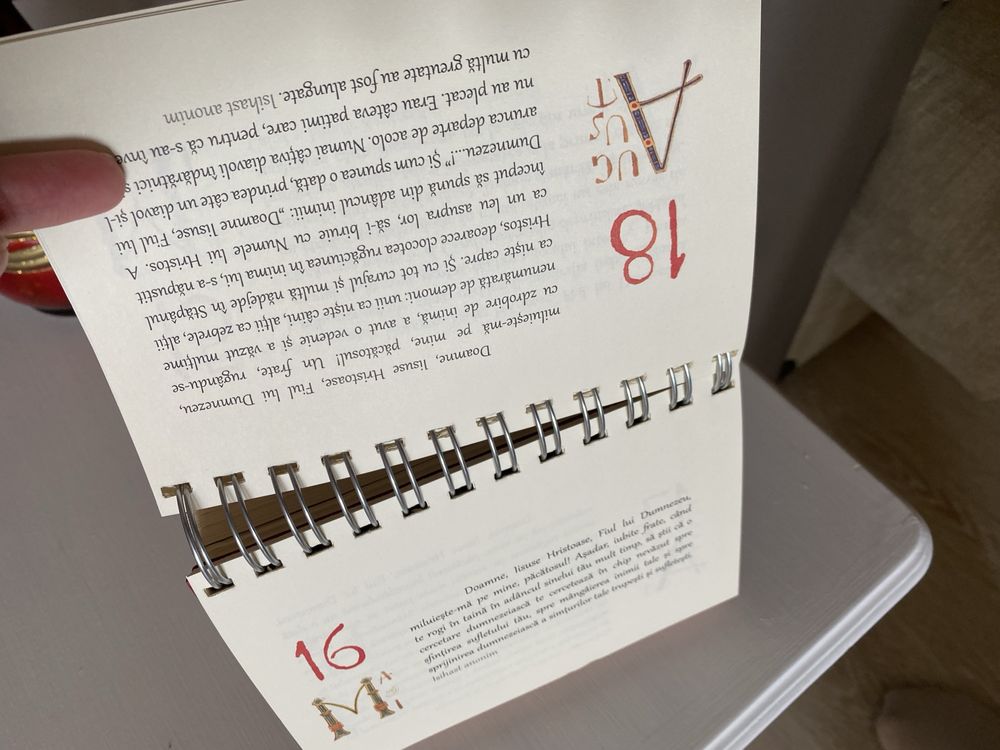 18
AUGUST
Doamne, Iisuse Hristoase, Fiul lui Dumnezeu,
miluiește-mă pe mine, păcătosul! Un frate, rugându-se
cu zdrobire de inimă, a avut o vedenie și a văzut mulțime
nenumărată de demoni: unii ca niște câini, alții ca zebrele, alții
ca niște capre. Și cu tot curajul și multă nădejde în Stăpânul
Hristos, deoarece clocotea rugăciunea în inima lui, s-a năpustit
ca un leu asupra lor, să-i biruie cu Numele lui Hristos. A
început să spună din adâncul inimii: „Doamne Iisuse, Fiul lui
Dumnezeu...." Și cum spunea o dată, prindea câte un diavol și-l
arunca departe de acolo. Numai câțiva diavoli îndărătnici
nu au plecat. Erau câteva patimi care, pentru că s-au
cu multă greutate au fost alungate. Isihast anonim
16
MAI
Doamne, Iisuse Hristoase, Fiul lui Dumnezeu,
miluiește-mă pe mine, păcătosul! Așadar, iubite frate, când
te rogi în taină în adâncul sinelui tău mult timp, să știi că o
cercetare dumnezeiască te cercetează în chip nevăzut spre
sfințirea sufletului tău, spre mângâierea inimii tale și spre
sprijinirea dumnezeiască a simțurilor tale trupești și sufletești.
Isihast anonim